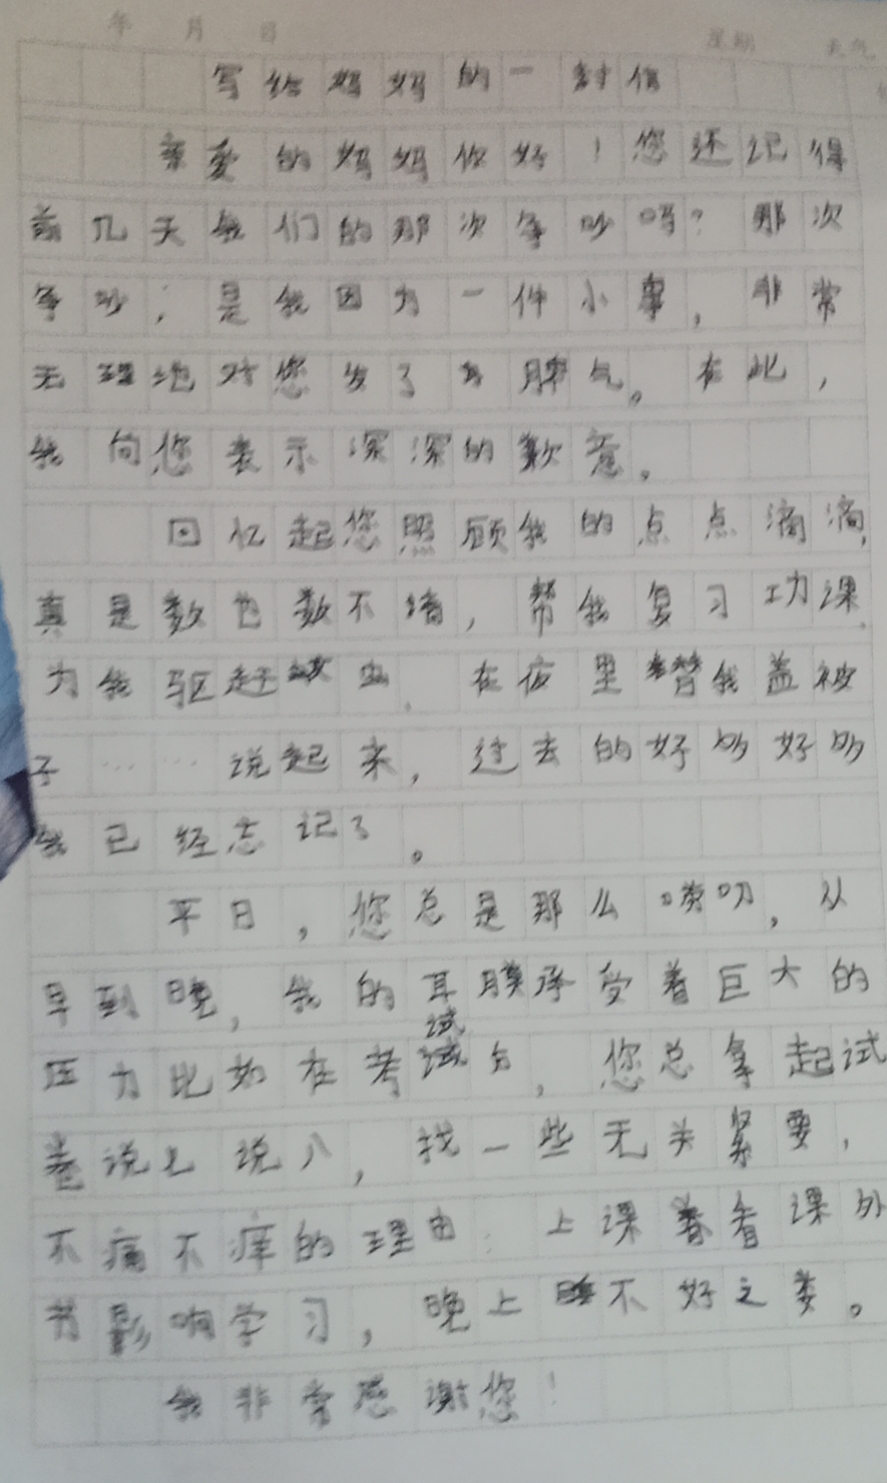 年 月 日 星期 天气
写给妈妈的一封信
亲爱的妈妈你好！您还记得
前几天我们的那次争吵吗？那次
争吵，是我因为一件小事，非常
无理地对您发了 脾气。在此，
我向您表示深深的歉意。
回忆起您照顾我的点点滴滴，
真是数也数不清，帮我复习功课，
为我驱赶蚊虫，在夜里替我盖被
子……说起来，过去的好多好多
我已经忘记了。
平日，您总是那么唠叨，从
早到晚，我的耳膜承受着巨大的
压力比如在考试后，您总拿起试
卷说七说八，找一些无关紧要，
不痛不痒的理由：上课看课外
书影响学习，晚上睡不好之类。
我非常感谢您！